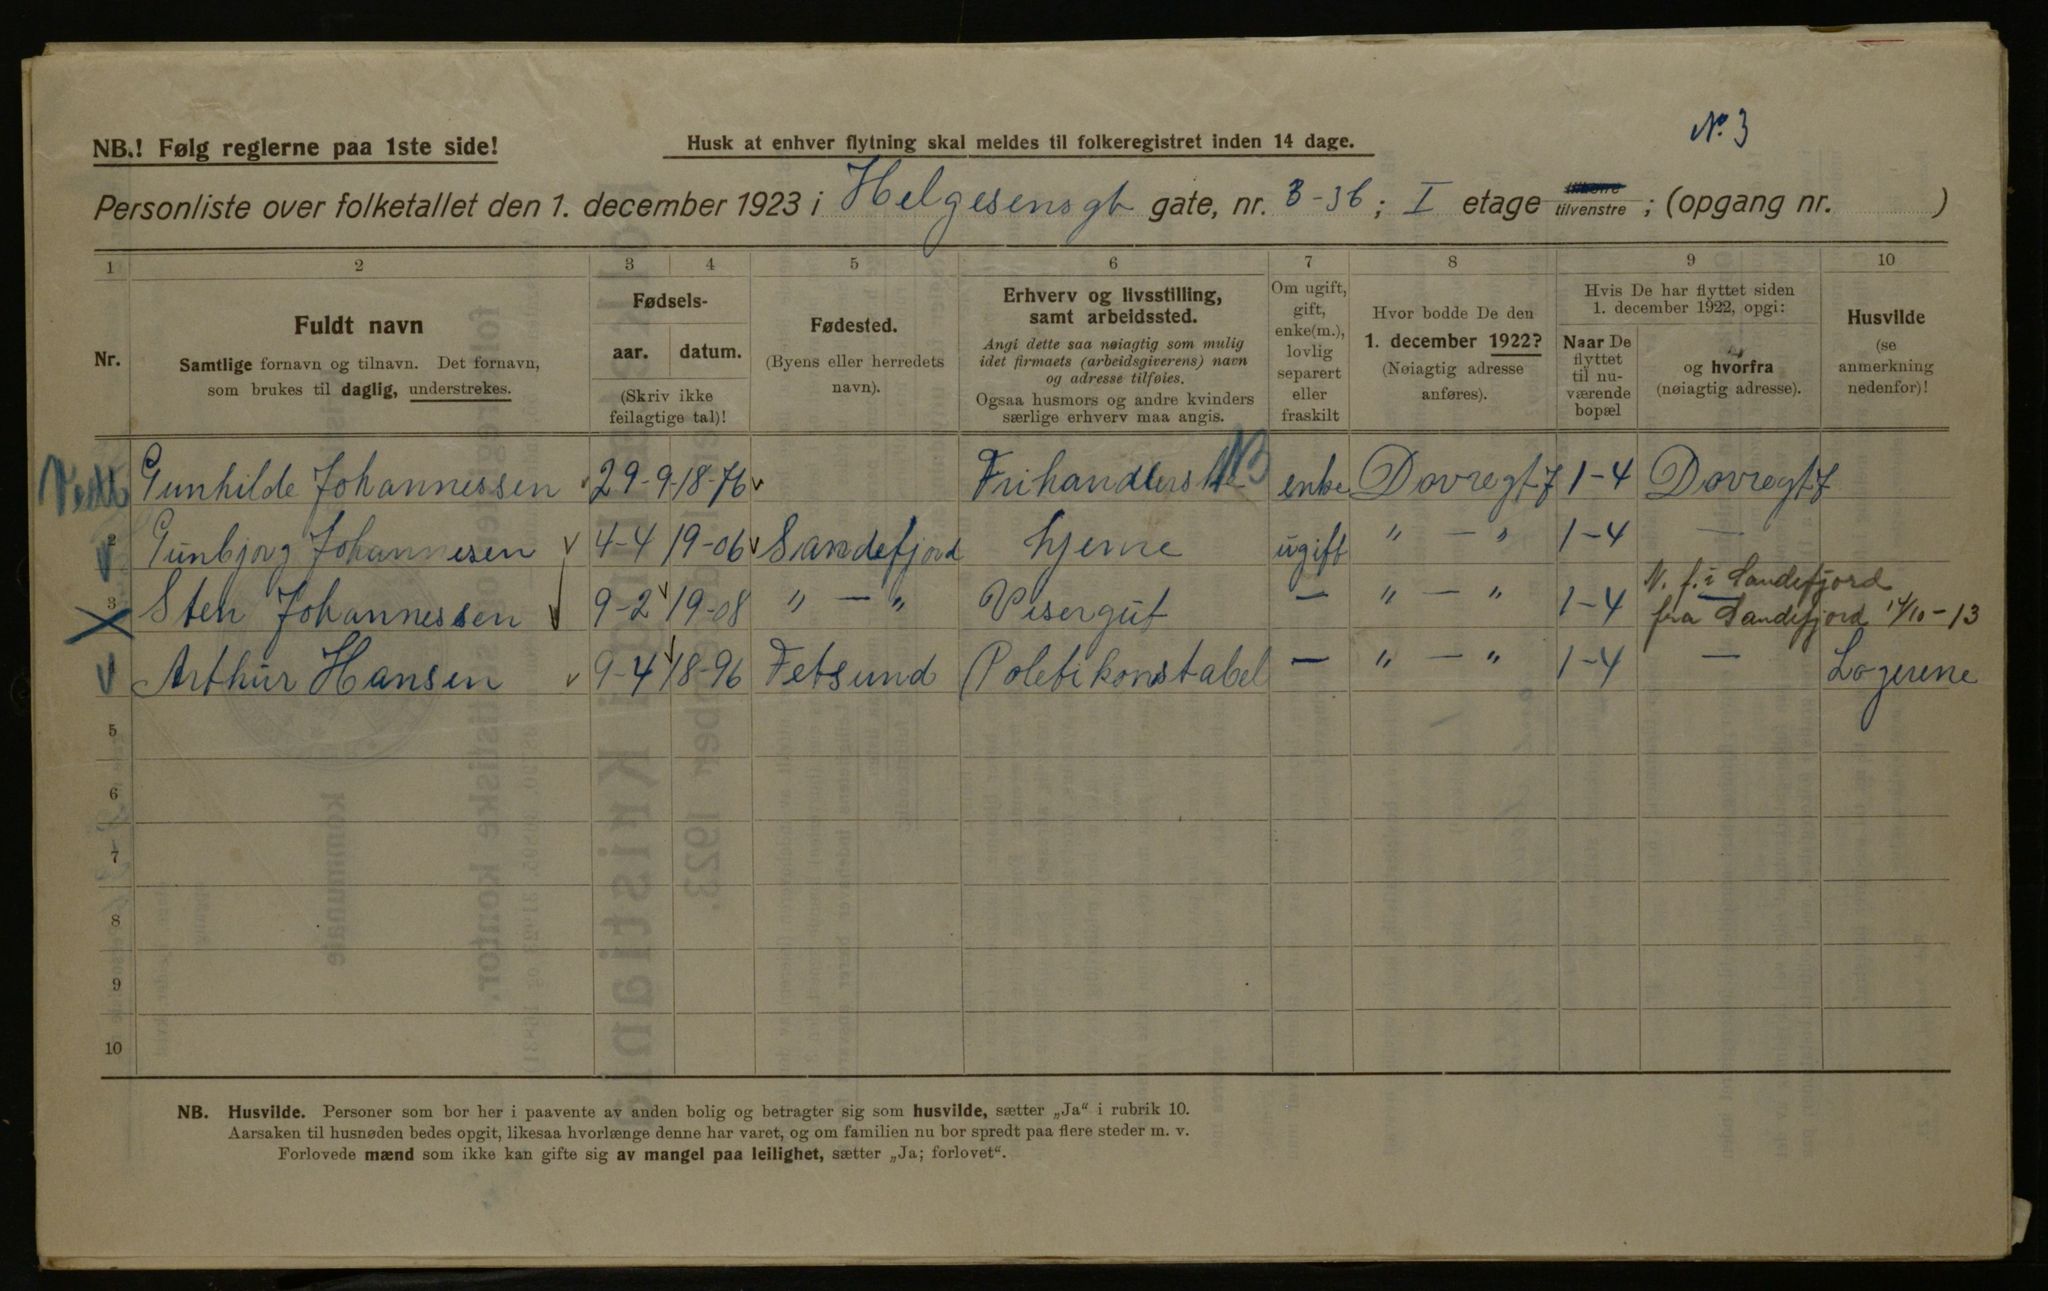 N° 3
NB.! Følg reglerne paa 1ste side!
Husk at enhver flytning skal meldes til folkeregistret inden 14 dage.
Personliste over folketallet den 1. december 1923 i Helgesensgt gate, nr. 3-36; I etage tilvenstre; (opgang nr. )
1 2 3 4 5 6 7 8 9 10
Nr.
Fuldt navn
Samtlige fornavn og tilnavn. Det fornavn,
som brukes til daglig, understrekes.
Fødsels-
aar. datum.
(Skriv ikke
feilagtige tal)!
Fødested.
(Byens eller herredets
navn).
Erhverv og livsstilling,
samt arbeidssted.
Angi dette saa nøiagtig som mulig
idet firmaets (arbeidsgiverens) navn
og adresse tilføies.
Ogsaa husmors og andre kvinders
særlige erhverv maa angis.
Om ugift,
gift,
enke(m.),
lovlig
separert
eller
fraskilt
Hvor bodde De den
1. december 1922?
(Nøiagtig adresse
anføres).
Hvis De har flyttet siden
1. december 1922, opgi:
Naar De
flyttet
til nu-
værende
bopæl
og hvorfra
(nøiagtig adresse).
Husvilde
(se
anmerkning
nedenfor)!
Gunhilde Johannessen 29-9 18-76 Frihandlerske enke Dovregt 7 1-4 Dovregt 7
2 Gunbjorg Johannesen 4-4 19-06 Sandefjord hjeme ugift " — " 1-4 —
3 Sten Johannessen 9-2 19-08 " — " Visergut — " — " 1-4 N. f. i Sandefjord
fra Sandefjord 14/10-13
Arthur Hansen 9-4 18-96 Fetsund Poletikonstabel — " — " 1-4 — Logerene
5
6
7
8
9
10
NB. Husvilde. Personer som bor her i paavente av anden bolig og betragter sig som husvilde, sætter „Ja“ i rubrik 10.
Aarsaken til husnøden bedes opgit, likesaa hvorlænge denne har varet, og om familien nu bor spredt paa flere steder m. v.
Forlovede mænd som ikke kan gifte sig av mangel paa leilighet, sætter „Ja; forlovet“.